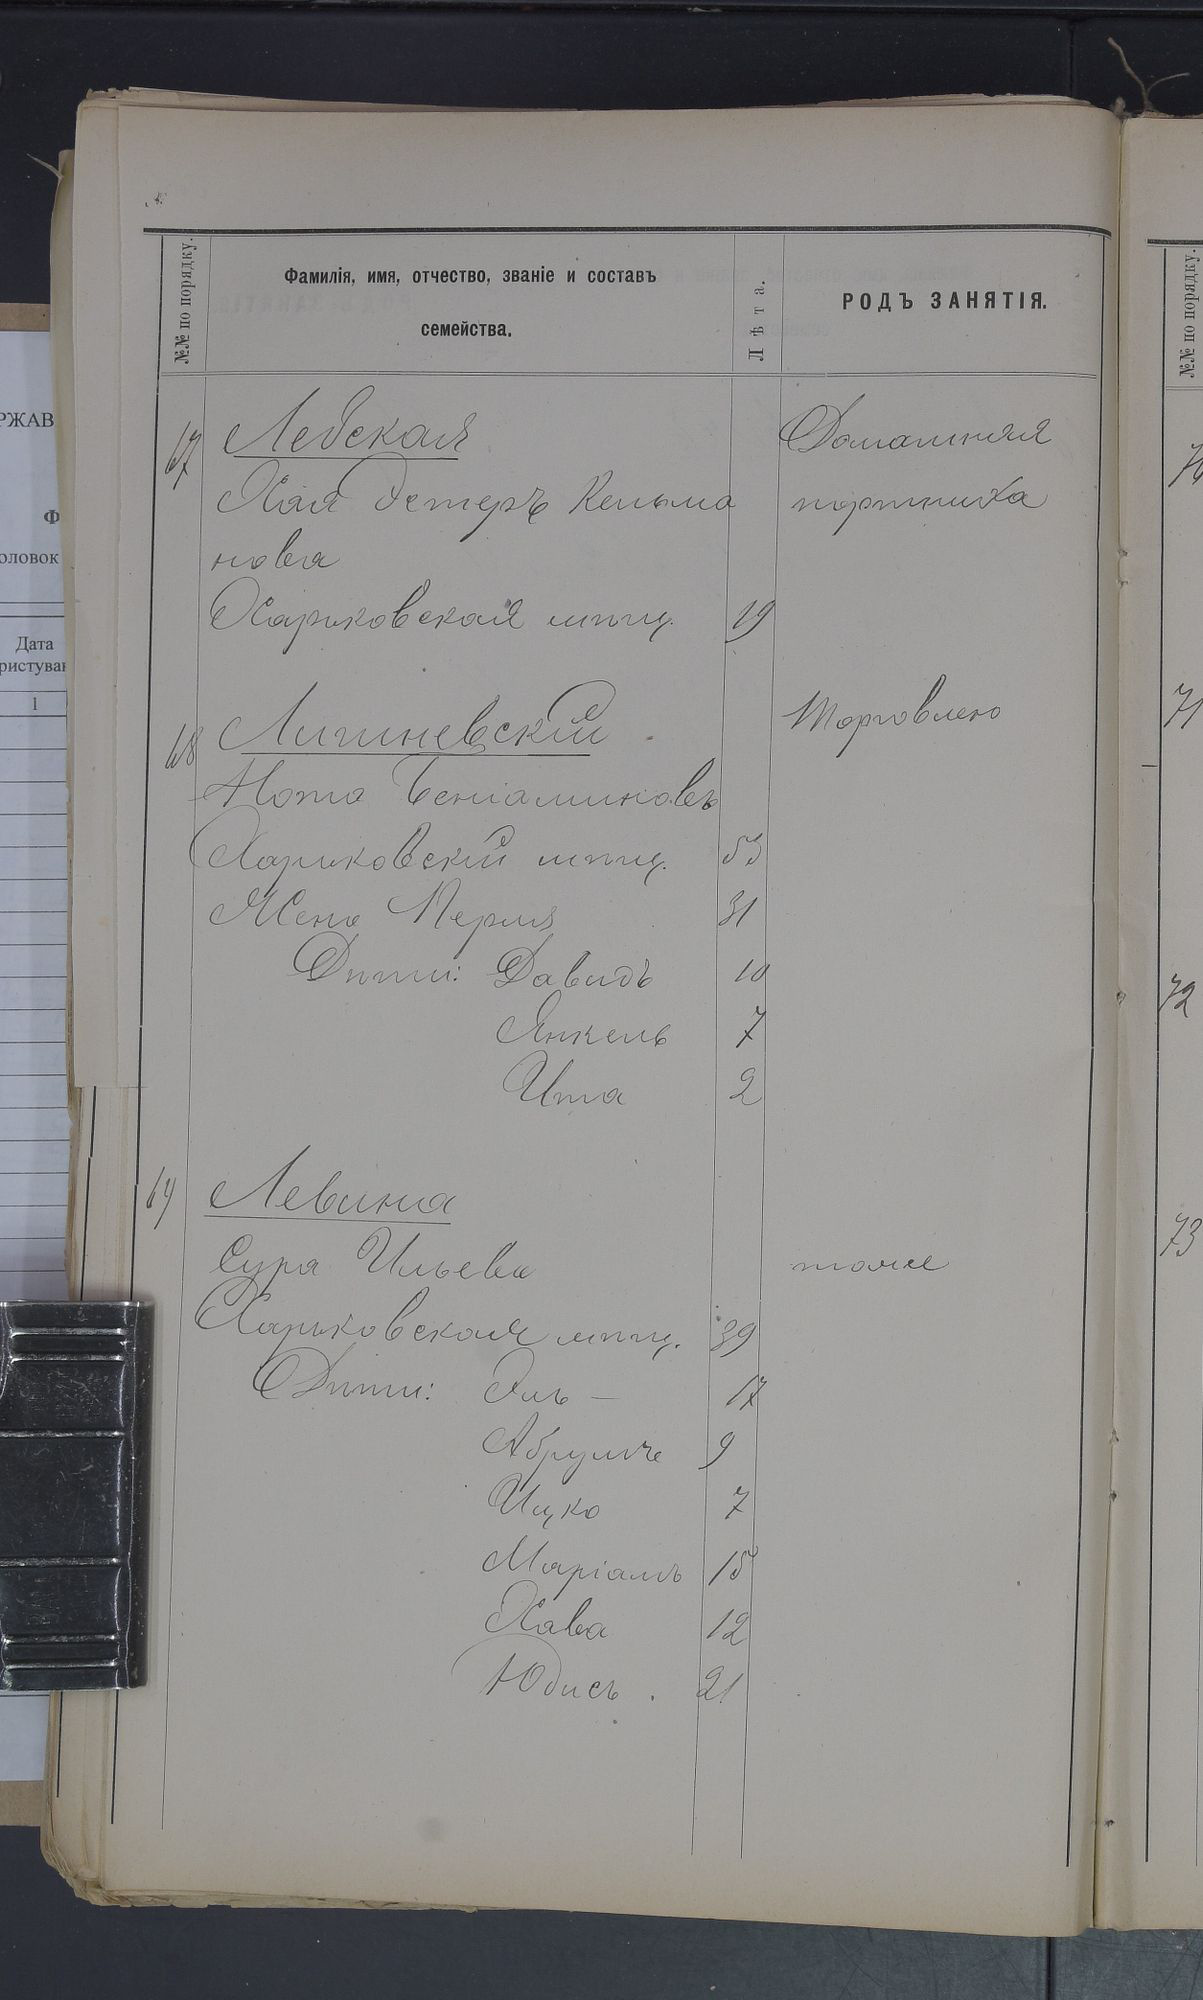 №№ по порядку.
Фамилія, имя, отчество, званіе и составъ
семейства.
Лѣта.
РОДЪ ЗАНЯТІЯ.
67 Лебская Домашняя
Хая Эстеръ Кельма портниха
нова
Харьковская мѣщ. 19
68 Лигиневскій Торговлею
Нота Беніаминовъ
Харьковскій мѣщ. 53
Жена Перля 31
Дѣти: Давидъ 10
Янкель 7
Ита 2
69 Левина
Сура Ильева тоже
Харьковская мѣщ. 39
Дѣти: Эль — 17
Абрумче 9
Ицко 7
Маріамъ 15
Хава 12
Юдись. 21
№№ по порядку.
70
71
72
73
РЖАВ
Ф
оловок
Дата
ристуван
1